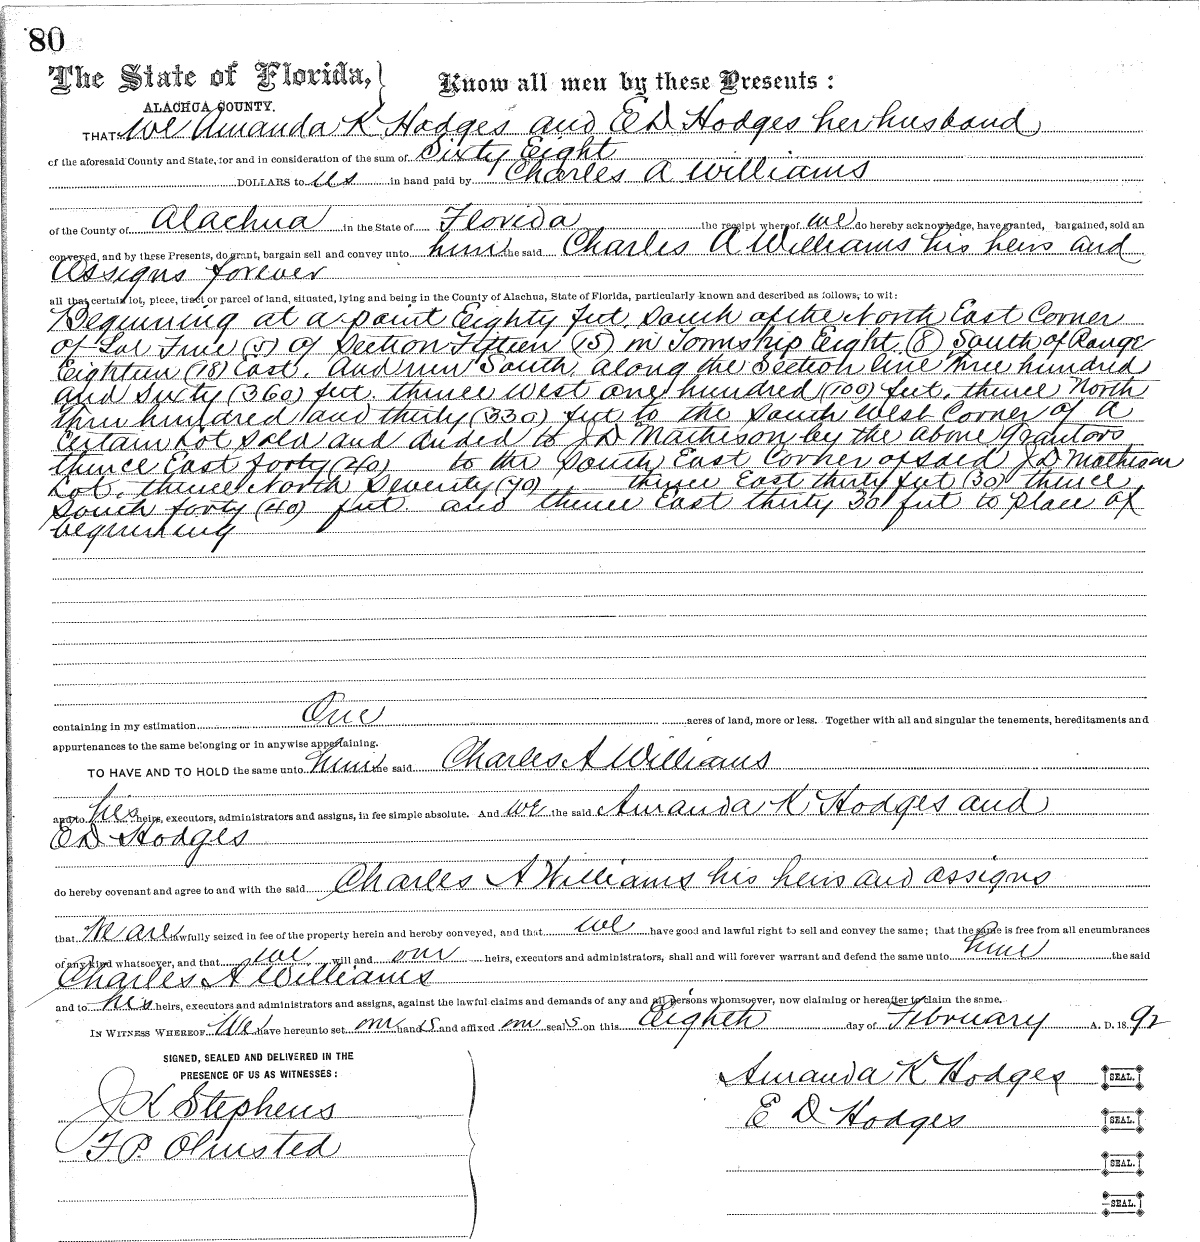 80
The State of Florida, } Know all men by these Presents :
ALACHUA COUNTY.
THAT We Amanda K Hodges and E D Hodges her husband
of the aforesaid County and State, for and in consideration of the sum of Sixty Eight
DOLLARS to us in hand paid by Charles A Williams
of the County of Alachua in the State of Florida the receipt whereof we do hereby acknowledge, have granted, bargained, sold an
conveyed, and by these Presents, do grant, bargain sell and convey unto him the said Charles A Williams his heirs and
Assigns forever
all that certain lot, piece, tract or parcel of land, situated, lying and being in the County of Alachua, State of Florida, particularly known and described as follows, to wit:
Beginning at a point Eighty feet South of the North East Corner
of Lot Five (5) of Section Fifteen (15) in Township Eight (8) South of Range
Eighteen (18) East. And run South, along the Section line three hundred
and sixty (360) feet. thence West one hundred (100) feet, thence North
three hundred and thirty (330) feet to the South West Corner of a
Certain Lot Sold and deeded to J D Matheson by the above Grantors
thence East forty (40) to the South East Corner of said J D Matheson
Lot, thence North Seventy (70) thence East thirty feet (30) thence
South forty (40) feet and thence East thirty 30 feet to place of
beginning
containing in my estimation One acres of land, more or less. Together with all and singular the tenements, hereditaments and
appurtenances to the same belonging or in anywise appertaining.
TO HAVE AND TO HOLD the same unto him the said Charles A Williams
and to his heirs, executors, administrators and assigns, in fee simple absolute. And we the said Amanda K Hodges and
E D Hodges
do hereby covenant and agree to and with the said Charles A Williams his heirs and assigns
that We are lawfully seized in fee of the property herein and hereby conveyed, and that we have good and lawful right to sell and convey the same; that the same is free from all encumbrances
of any kind whatsoever, and that we will and our heirs, executors and administrators, shall and will forever warrant and defend the same unto him the said
Charles A Williams
and to his heirs, executors and administrators and assigns, against the lawful claims and demands of any and all persons whomsoever, now claiming or hereafter to claim the same.
IN WITNESS WHEREOF We have hereunto set our hands and affixed our seals on this Eighth day of February A. D. 1892
SIGNED, SEALED AND DELIVERED IN THE
PRESENCE OF US AS WITNESSES :
Amanda K Hodges SEAL.
J K Stephens
E D Hodges SEAL.
F. P. Olmsted
SEAL.
SEAL.